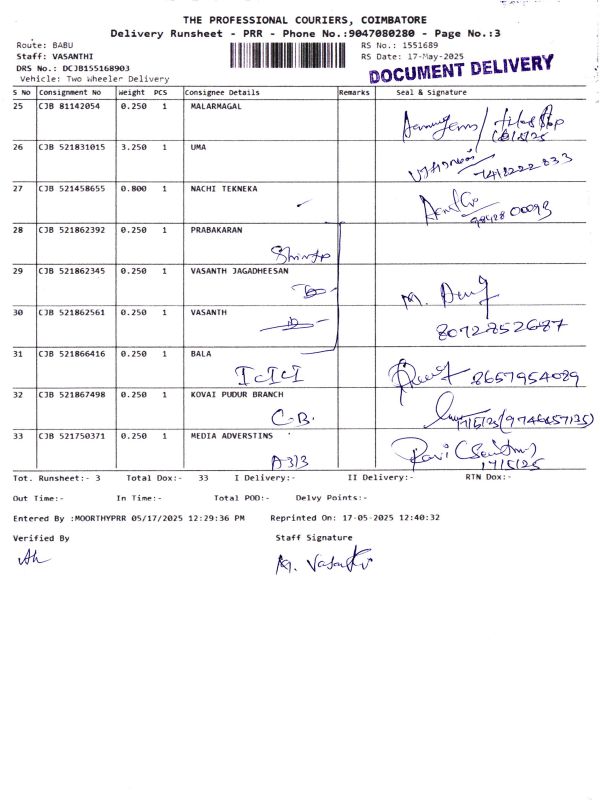 THE PROFESSIONAL COURIERS, COIMBATORE
Delivery Runsheet - PRR - Phone No.:9047080280 - Page No.:3
Route: BABU
RS No.: 1551689
Staff: VASANTHI
RS Date: 17-May-2025
DRS No.: DCJB155168903
Vehicle: Two Wheeler Delivery
DOCUMENT DELIVERY
S No Consignment No Weight PCS Consignee Details Remarks Seal & Signature
25 CJB 81142054 0.250 1 MALARMAGAL
26 CJB 521831015 3.250 1 UMA
7418222833
27 CJB 521458655 0.800 1 NACHI TEKNEKA
9842800093
28 CJB 521862392 0.250 1 PRABAKARAN
29 CJB 521862345 0.250 1 VASANTH JAGADHEESAN
30 CJB 521862561 0.250 1 VASANTH
8072852687
31 CJB 521866416 0.250 1 BALA
ICICI 8657954089
32 CJB 521867498 0.250 1 KOVAI PUDUR BRANCH
C-B.
33 CJB 521750371 0.250 1 MEDIA ADVERSTINS
A313 17/5/25
Tot. Runsheet:- 3 Total Dox:- 33 I Delivery:- II Delivery:- RTN Dox:-
Out Time:- In Time:- Total POD:- Delvy Points:-
Entered By :MOORTHYPRR 05/17/2025 12:29:36 PM Reprinted On: 17-05-2025 12:40:32
Verified By Staff Signature